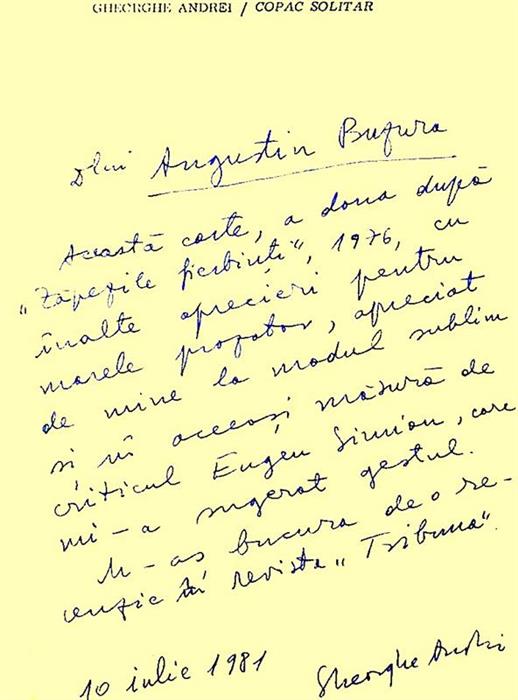 GHEORGHE ANDREI / COPAC SOLITAR
Dlui Augustin Buzura
Această carte, a doua după
"Zăpezile fierbinți", 1976, cu
înalte aprecieri pentru
marele prozator, apreciat
de mine la modul sublim
și în aceeași măsură de
criticul Eugen Simion, care
mi-a sugerat gestul.
M-aș bucura de o re-
cenzie în revista "Tribuna".
10 iulie 1981
Gheorghe Andrei